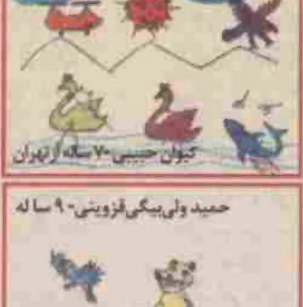 کیوان حبیبی -۷ ساله از تهران
حمید ولی‌بیگی قزوینی- ۹ سا له